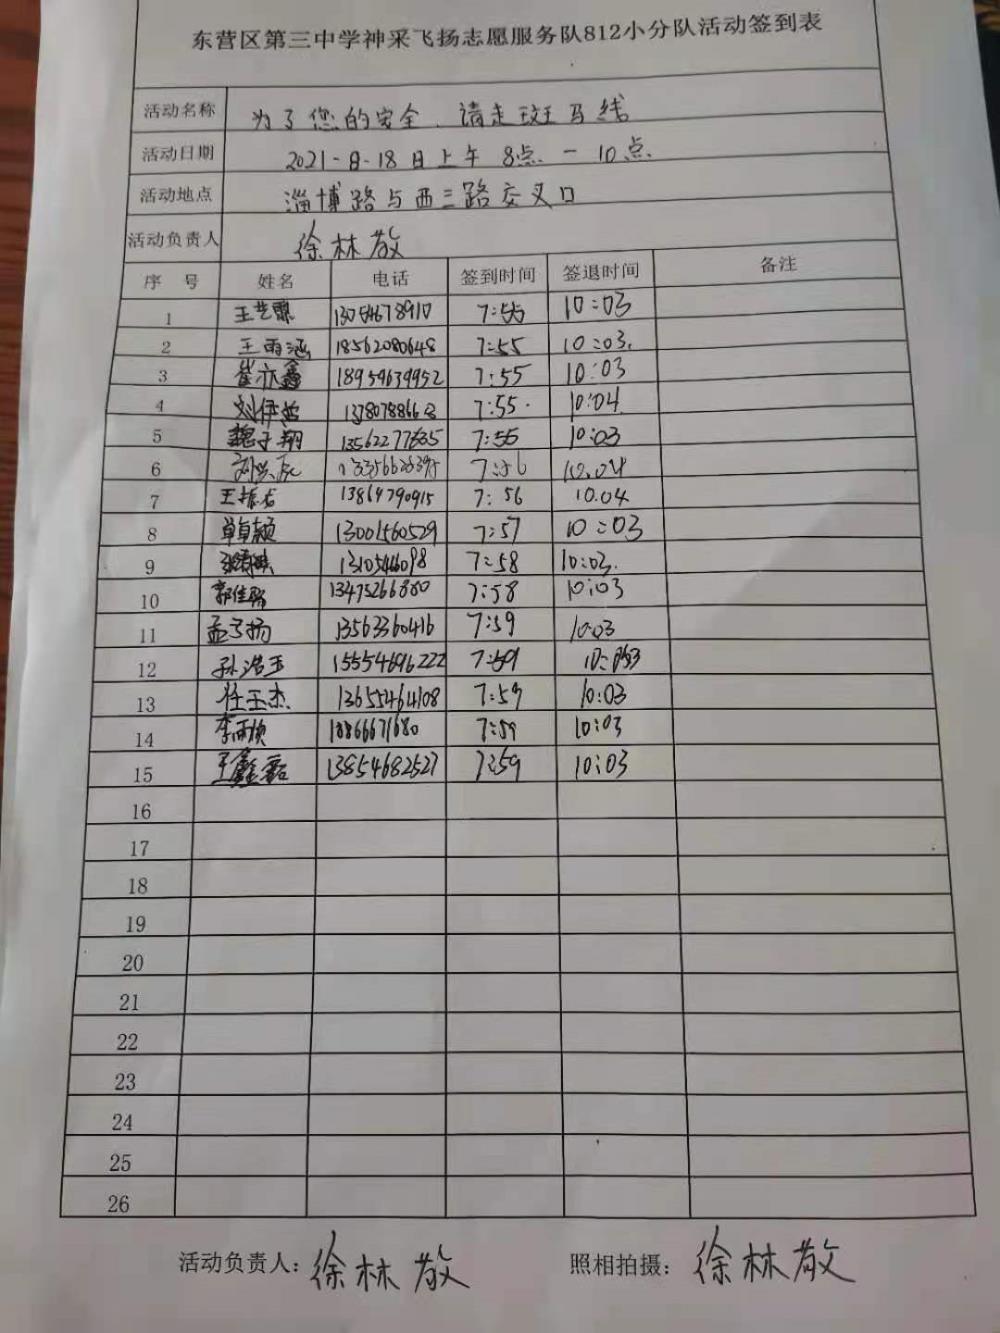 东营区第三中学神采飞扬志愿服务队812小分队活动签到表
活动名称 为了您的安全、请走斑马线
活动日期 2021-8-18日上午 8点-10点
活动地点 淄博路与西三路交叉口
活动负责人 徐林敬
序 号 姓名 电话 签到时间 签退时间 备注
1 7:55 10:03
2 王雨涵 18562080648 7:55 10:03.
3 崔亦鑫 18954639952 7:55 10:03
4 7:55. 10:04
5 魏子翔 7:55 10:03
6 7:56 10.04
7 王振龙 13864790915 7:56 10.04
8 单卓颖 13001560529 7:57 10:03
9 7:58 10:03.
10 13475266880 7:58 10:03
11 孟子扬 13563360416 7:59 10:03
12 孙浩玉 15554696222 7:59
13 任玉杰 13655464108 7:59 10:03
14 7:59 10:03
15 王鑫磊 13854682527 7:59 10:03
16
17
18
19
20
21
22
23
24
25
26
活动负责人: 徐林敬 照相拍摄: 徐林敬